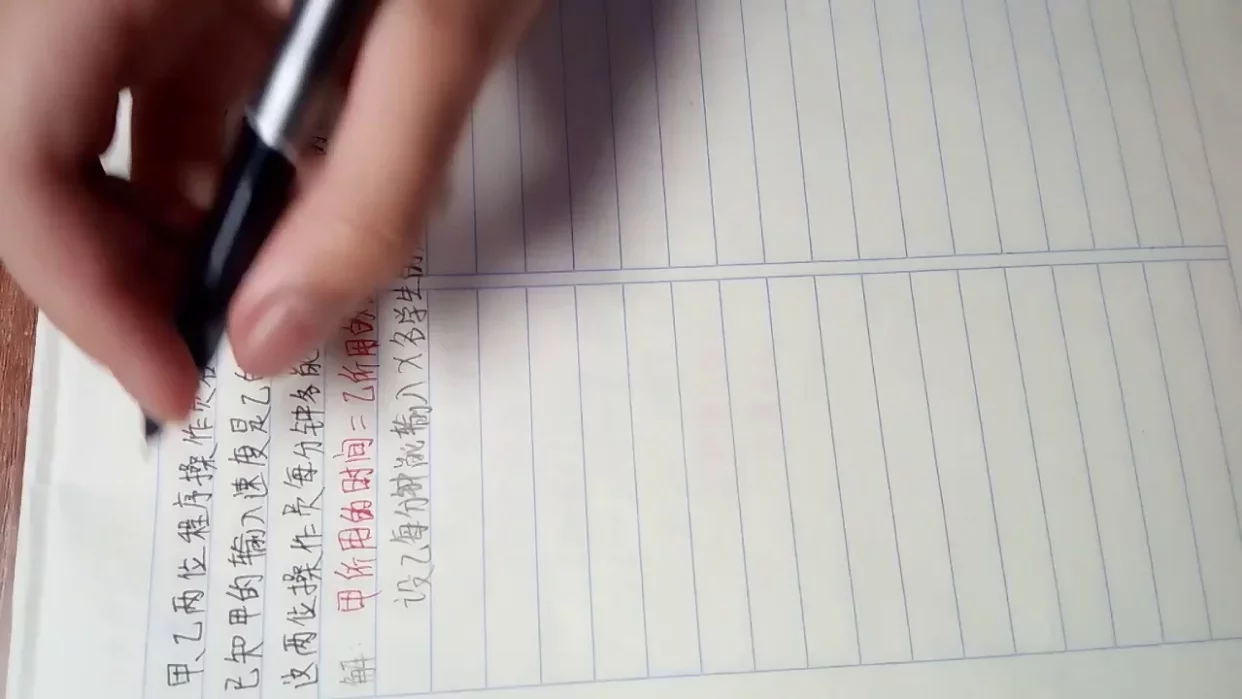 甲、乙两位程序操作员
已知甲的输入速度是乙的
这两位操作员每分钟各能
解: 甲所用的时间=乙所用的
设乙每分钟能输入X名学生的